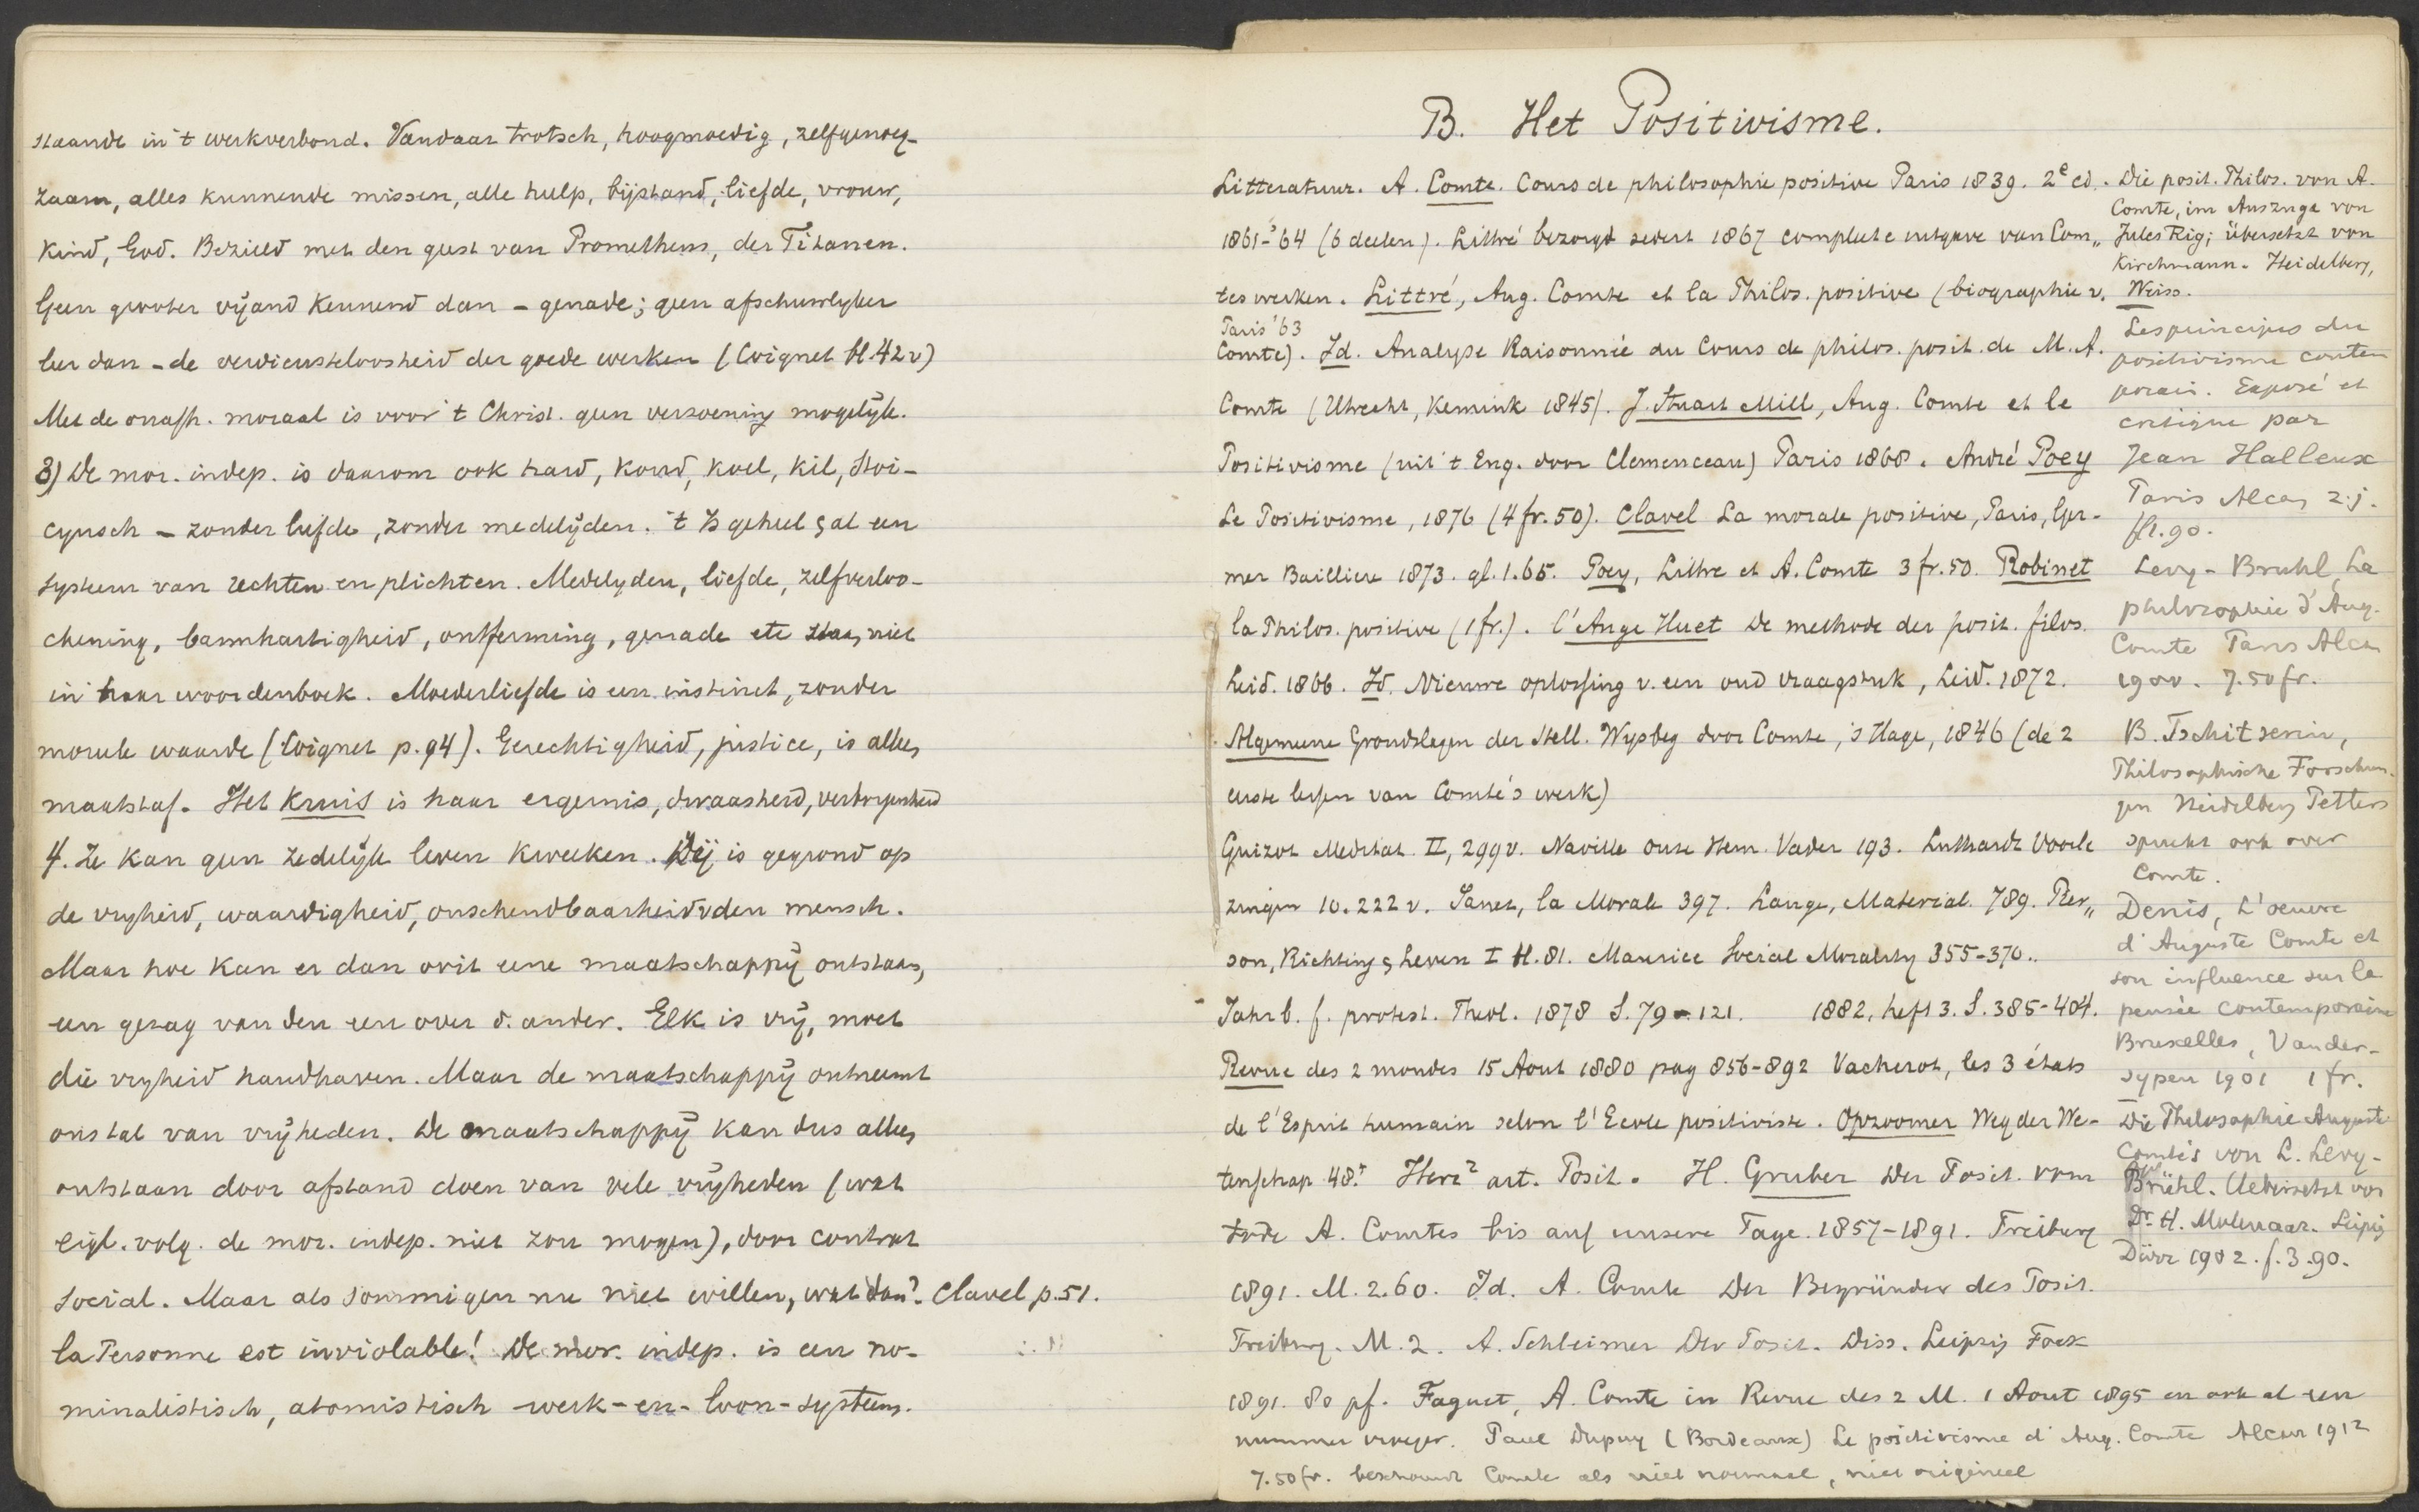 staande in 't werkverbond. Vandaar trotsch, hoogmoedig, zelfgenoeg-
zaam, alles kunnende missen, alle hulp, bijstand, liefde, vrouw,
kind, God. Bezield met den geest van Prometheus, der Titanen.
Geen grooter vijand kennend dan – genade; geen afschuwlyker
leer dan – de verdiensteloosheid der goede werken (Coignet bl. 42 v)
Met de onafh. moraal is voor 't Christ. geen verzoening mogelijk.
3) De mor. indep. is daarom ook hard, koud, koel, kil, Stoi-
cynsch – zonder liefde, zonder medelijden. 't Is geheel & al een
systeem van rechten en plichten. Medelyden, liefde, zelfverloo-
chening, barmhartigheid, ontferming, genade etc staan niet
in haar woordenboek. Moederliefde is een instinct, zonder
moreele waarde (Coignet p. 94). Gerechtigheid, justice, is aller
maatstaf. Het kruis is haar ergernis, dwaasheid,
4. Ze kan geen zedelijk leven kweeken. Zij is gegrond op
de vryheid, waardigheid, onschendbaarheid v den mensch.
Maar hoe kan er dan ooit eene maatschappij ontstaan,
een gezag van den een over d. ander. Elk is vrij, moet
die vryheid handhaven. Maar de maatschappij ontneemt
ons tal van vrijheden. De maatschappij kan dus alleen
ontstaan door afstand doen van vele vrijheden (wat
eigl. volg. de mor. indep. niet zou mogen), door contrat
social. Maar als sommigen nu niet willen, wat dan? Clavel p. 51.
la Personne est inviolable! De mor. indep. is een no-
minalistisch, atomistisch werk-en-loon-systeem.
B. Het Positivisme.
Litteratuur. A. Comte. Cours de philosophie positive Paris 1839. 2e ed.
1861-'64 (6 deelen). Littré bezorgd sedert 1867 complete uitgave van Com„
tes werken. Littré, Aug. Comte et la Philos. positive (biographie v.
Paris '63
Comte). Id. Analyse Raisonnée du Cours de philos. posit. de M. A.
Comte (Utrecht, Kemink 1845). J. Stuart Mill, Aug. Comte et le
Positivisme (uit 't Eng. door Clemenceau) Paris 1868. André Poey
Le Positivisme, 1876 (4 fr. 50). Clavel La morale positive, Paris, Ger-
mer Bailliere 1873. gl. 1.65. Poey, Littre et A. Comte 3 fr. 50. Robinet
la Philos. positive (1 fr.). l'Ange Huet De methode der posit. filos.
Leid. 1866. Id. Nieuwe oplossing v. een oud vraagstuk, Leid. 1872.
Algemeene Grondslagen der Stell. Wysbeg door Comte, 's Hage, 1846 (de 2
eerste lessen van Comte's werk)
Guizot Meditat. II, 299 v. Naville onze Hem. Vader 193. Luthardt Voorle
zingen 10. 222 v. Janet, la Morale 397. Lange, Material. 789. Pier„
son, Richting & Leven I H. 81. Maurice Social Morality 355-370.
Jahrb. f. protest. Theol. 1878 S. 79-121. 1882, heft 3. S. 385-404.
Revue des 2 mondes 15 Aout 1880 pag 856-892 Vacherot, les 3 états
de l'Esprit humain selon l'Ecole positiviste. Opzoomer Weg der We-
tenschap 48. Herz2 art. Posit. H. Gruber Der Posit. vom
tode A. Comtes bis auf unsere Tage. 1857-1891. Freiburg
1891. M. 2.60. Id. A. Comte Der Begründer des Posit.
Freiburg. M. 2. A. Schleimer Der Posit. Diss. Leipzig Fock
1891. 80 pf. Faguet, A. Comte in Revue des 2 M. 1 Aout 1895 en ook al een
nummer vroeger. Paul Dupuy (Bordeaux) Le positivisme d'Aug. Comte Alcan 1912
7.50 fr. beschouwt Comte als niet normaal, niet origineel
Die posit. Philos. von A.
Comte, im Auszuge von
Jules Rig; übersetzt von
Kirchmann. Heidelberg,
Weiss.
Les principes du
positivisme contem
porain. Exposé et
critique par
Jean Halleux
Paris Alcan z.j.
fl. 90.
Levy-Bruhl, La
philosophie d'Aug.
Comte Paris Alcan
1900. 7.50 fr.
B. Tschitserin,
Philosophische Forschun-
gen Heidelberg Petters
spreekt ook over
Comte.
Denis, L'oeuvre
d'Auguste Comte et
son influence sur la
pensée contemporaine
Bruxelles, Vander-
sypen 1901 1 fr.
Die Philosophie Auguste
Comte's von L. Levy-
Brühl. Uebersetzt von
Dr. H. Molenaar. Leipzig
Dürr 1902. f. 3.90.